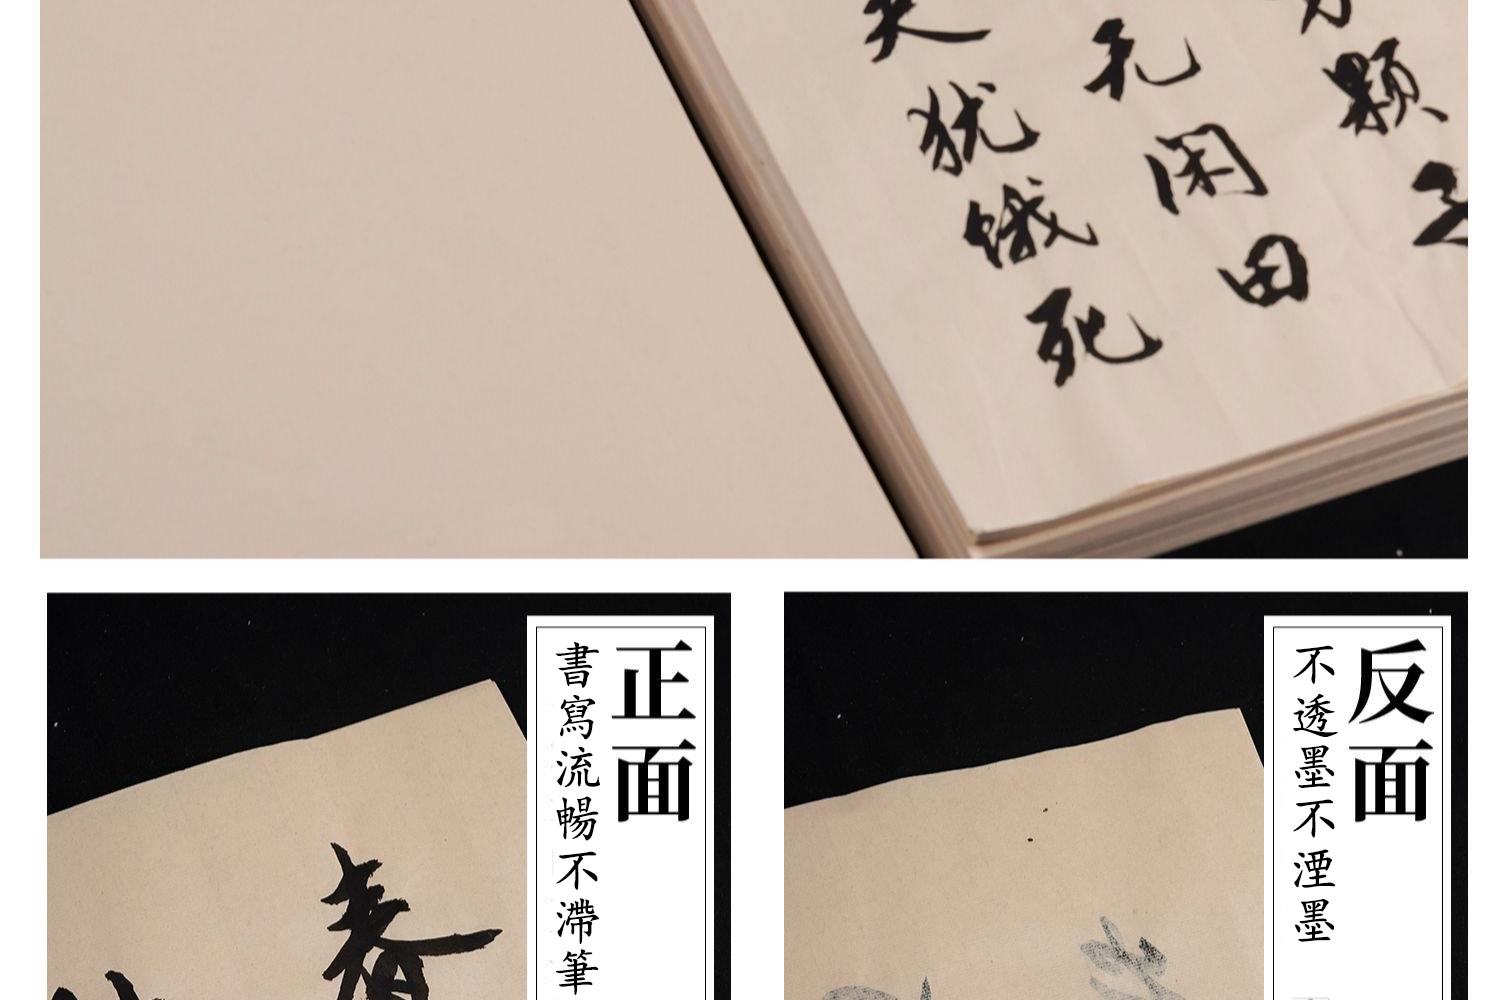 颗子
无闲田
夫犹饿死
正面
書寫流暢不滯筆
春
反面
不透墨不湮墨